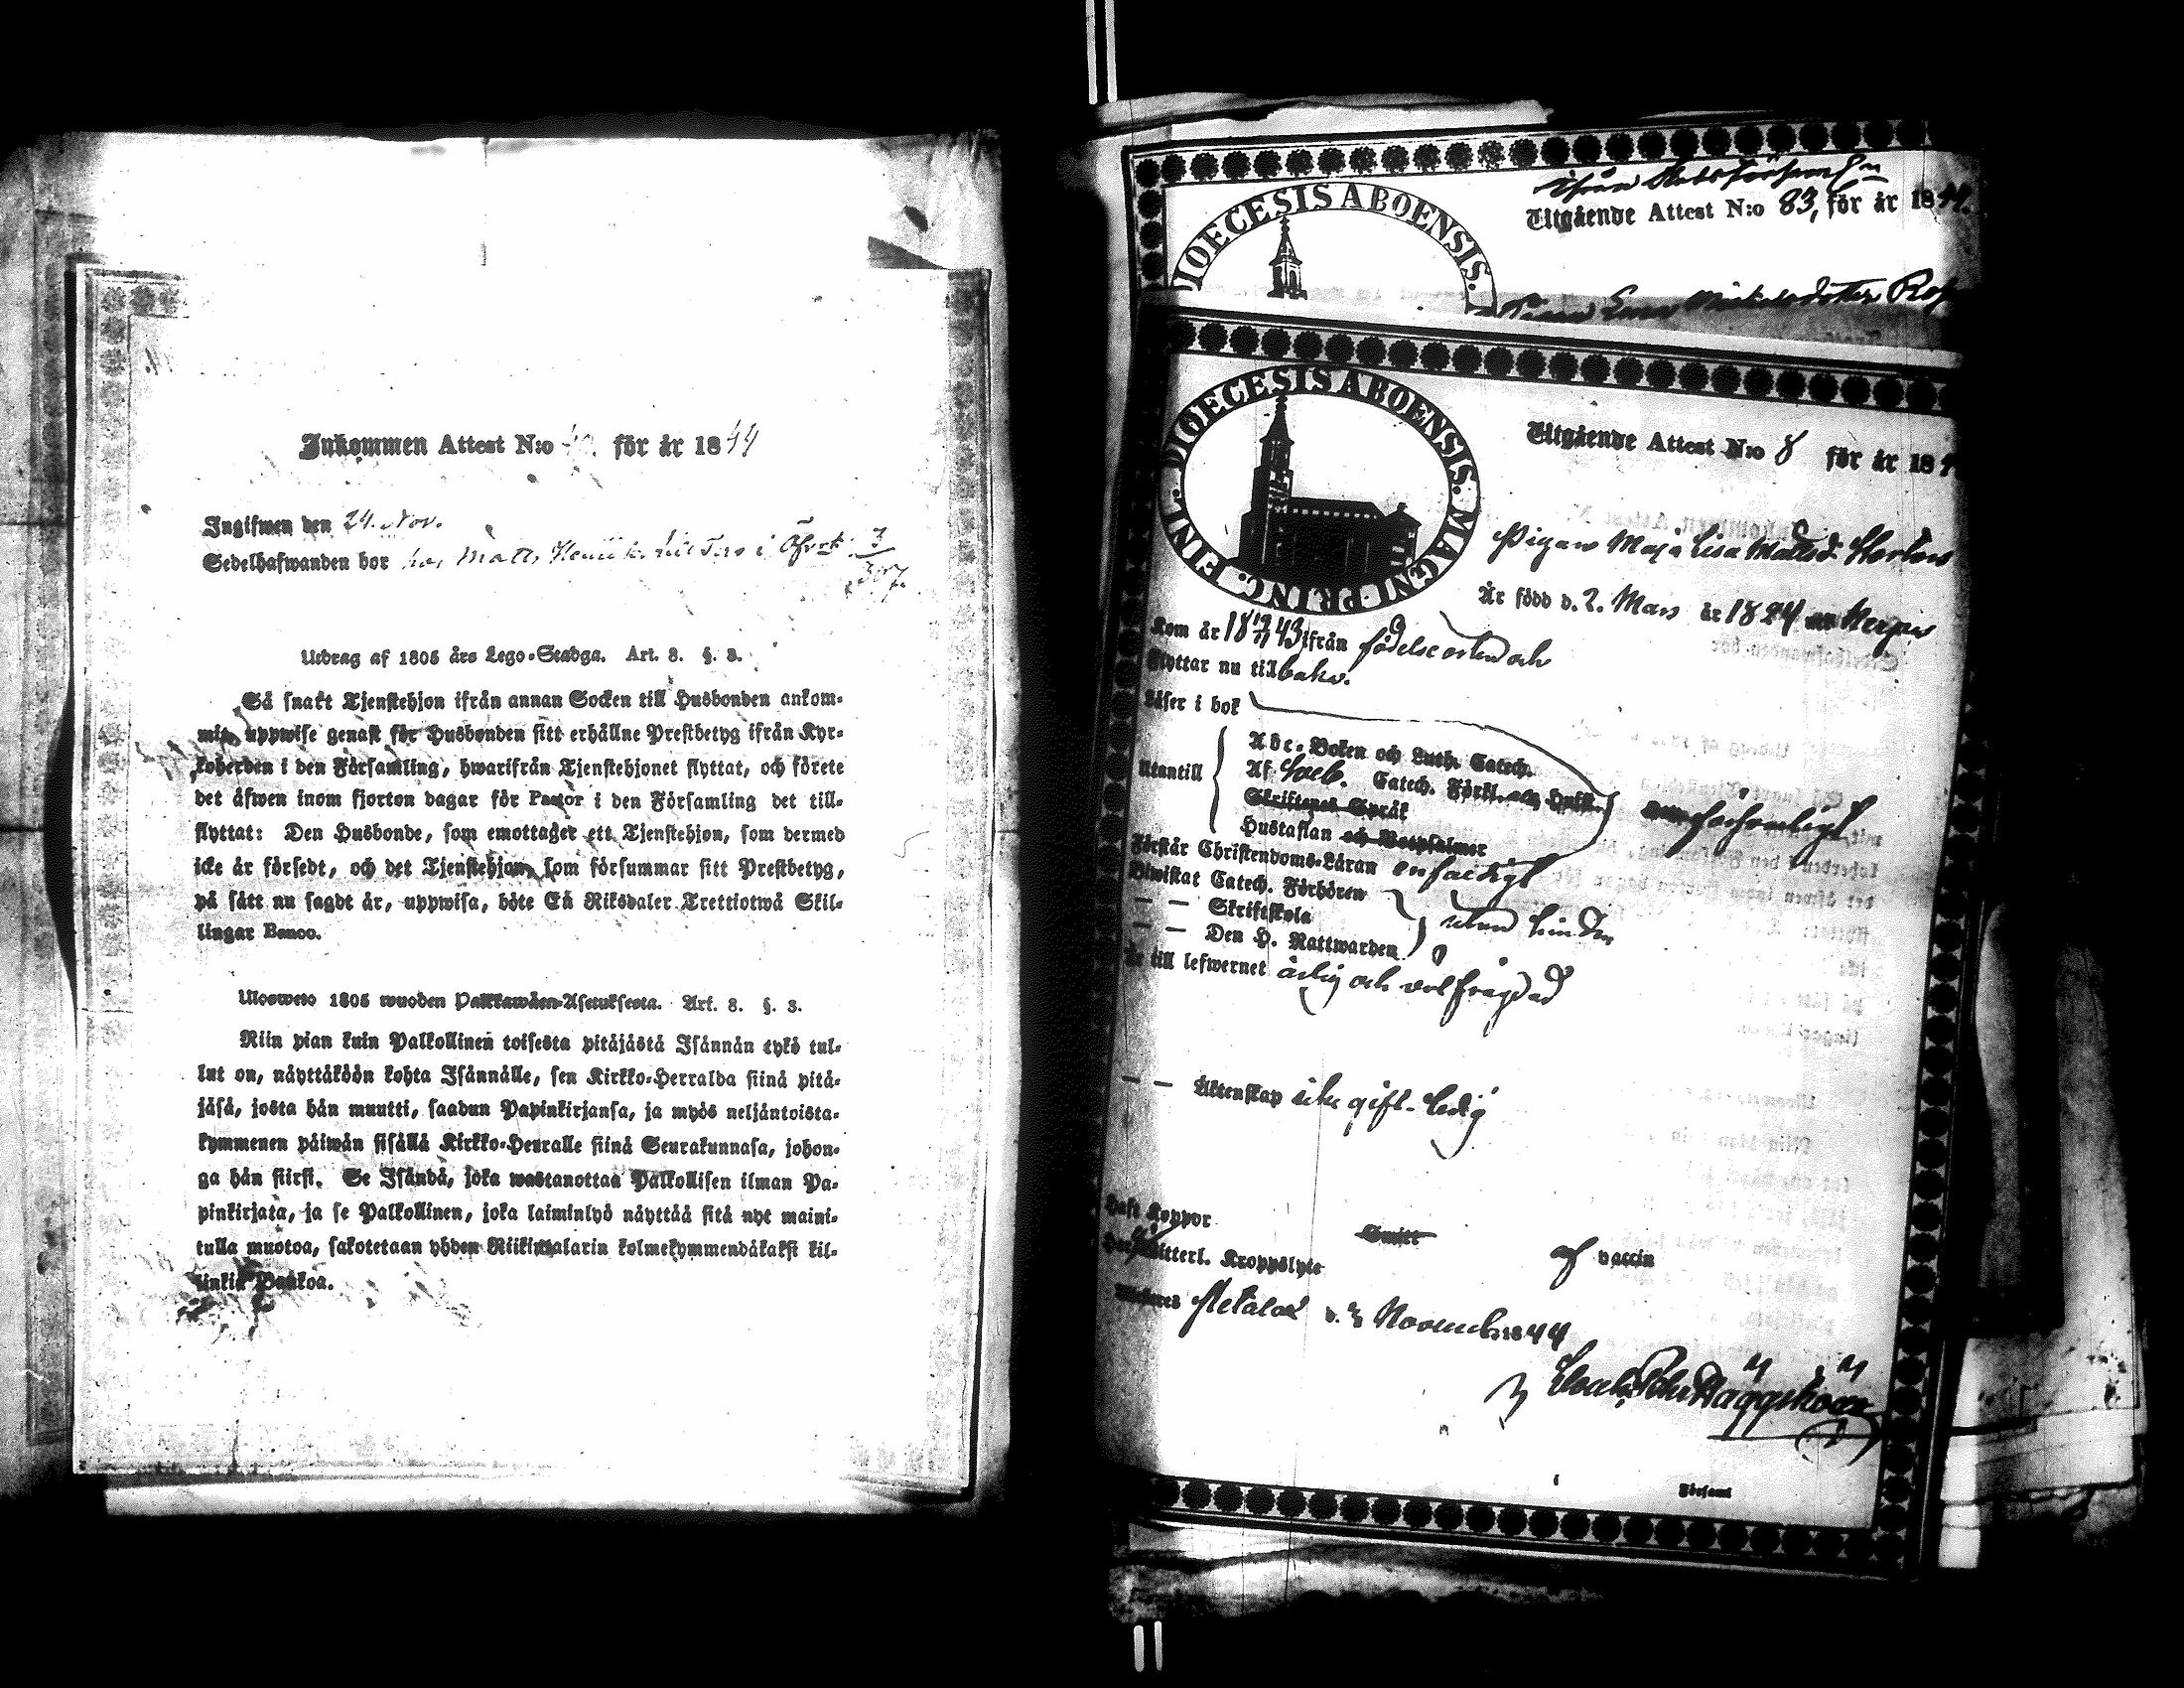 Inkommen Attest N:o för år 1844
Ingifwen den 24. Nov.
Sedelhafwanden bor hos Matts Henrik i Öfvrk: 3
307.
Utdrag af 1805 års Lego-Stadga. Art. 8. §. 3.
Så snart Tjenstehjon ifrån annan Socken till Husbonden ankom-
mit, uppwise genast för Husbonden sitt erhållne Prestbetyg ifrån Kyr-
koherden i den Församling, hwarifrån Tjenstehjonet flyttat, och förete
det äfwen inom fjorton dagar för Pastor i den Församling det till-
flyttat: Den Husbonde, som emottager ett Tjenstehjon, som dermed
icke är försedt, och det Tjenstehjon, som försummar sitt Prestbetyg,
på sätt nu sagdt är, uppwisa, böte En Riksdaler Trettiotwå Skil-
lingar Banco.
Ulosweto 1805 wuoden Palkkawäen-Asetuksesta. Art. 8. §. 3.
Niin pian kuin Palkollinen toisesta pitäjästä Isännän tykö tul-
lut on, näyttäköön kohta Isännälle, sen Kirkko-Herralda siinä pitä-
jäsä, josta hän muutti, saadun Papinkirjansa, ja myös neljäntoista-
kymmenen päiwän sisällä Kirkko-Herralle siinä Seurakunnasa, johon-
ga hän siirsi. Se Isändä, joka wastanottaa Palkollisen ilman Pa-
pinkirjata, ja se Palkollinen, joka laiminlyö näyttää sitä nyt maini-
tulla muotoa, sakotetaan yhden Riikintalarin kolmekymmendäkaksi kil-
linkiä Bankoa.
DIOECESIS ABOENSIS.
ifrån
Utgående Attest N:o 83, för år 1844.
Ewa Mickelsdotter
FINL. DIOECESIS ABOENSIS. MAGNI PRINC.
Utgående Attest N:o 8 för år 184
Pigan Maja Lisa Mattsd:
Är född d. 2. Mars år 1824
Kom år 18 43 ifrån födelseorten och
Flyttar nu tillbaka.
Läser i bok
Utantill
Abc-Boken och Luth. Catech.
Af Sveb. Catech. Förkl. och Hufst.
Skriftenes Språk
Hustaflan och Botpsalmer
försvarligt
Förstår Christendoms-Läran enfaldigt
Biwistat Catech. Förhören
— — Skriftskola
— — Den H. Nattwarden
utan hinder
Är till lefwernet ärlig och välfrägdad
— — Äktenskap icke gift. ledig
Haft Koppor
Smitt
af vaccin
Har Witterl. Kroppslyte
Witnes Metala d. Novemb: 1844
Häggström
Församl